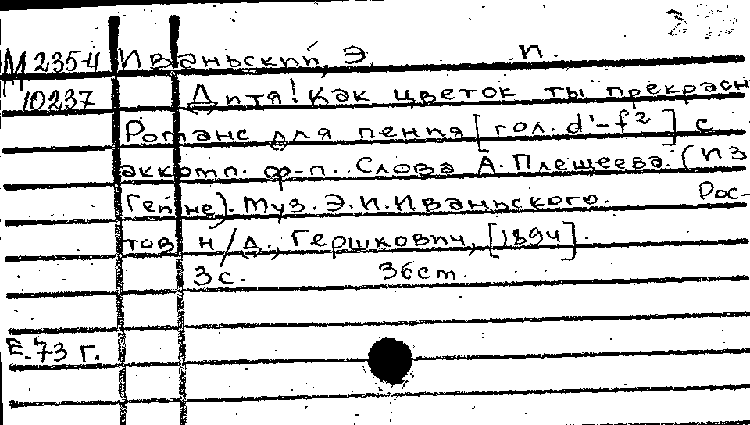 М 235-4 Иваньский, Э. И.
10237 Дитя! Как цветок ты прекрасн
Романс для пения [гол. d'-f²] с
аккомп. ф-п. Слова А. Плещеева. (Из
Гейне). Муз. Э. И. Иваньского. Рос-
тов н/Д., Гершкович, [1894].
3с. 36ст.
Е.-73 г.